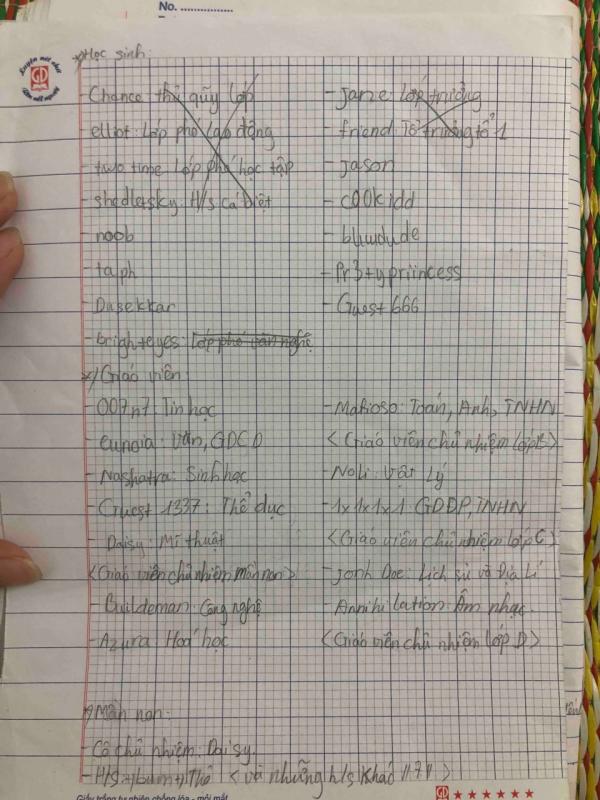 No. ................
Luyện nét chữ
GD
Rèn nết người
*)Học sinh:
Chance thủ quỹ lớp
- elliot: Lớp phó lao động
- two time Lớp phó học tập
- shedletsky: H/s cá biệt
- noob
- taph
- Dusekkar
- brighteyes: Lớp phó văn nghệ
- Jane Lớp trưởng
- friend: Tổ trưởng tổ 1
- Jason
- c00kidd
- bluudude
- Pr3+ypriincess
- Guest 666
*)Giáo viên:
- 007n7: Tin học
- eunoia: Văn, GDCD
- Nashatra: Sinh học
- Guest 1337: Thể dục
- Daisy: Mĩ thuật
<Giáo viên chủ nhiệm mần non>
- Buildeman: Công nghệ
- Azura Hoá học
- Mafioso: Toán, Anh, TNHN
<Giáo viên chủ nhiệm lớp B>
- Noli: Vật Lý
- 1x1x1x1 GDĐP, TNHN
<Giáo viên chủ nhiệm lớp C>
- Jonh Doe: Lịch sử và Địa Lí
- Annihilation Âm nhạc.
<Giáo viên chủ nhiệm lớp D>
*)Mần non:
- Cô chủ nhiệm: Daisy.
<và những h/s khác
GD ★★★★★★